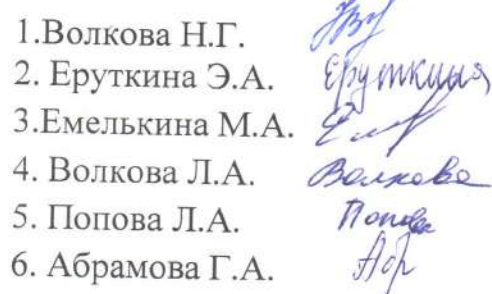 1.Волкова Н.Г.
2. Еруткина Э.А. Еруткина
3.Емелькина М.А.
4. Волкова Л.А. Волкова
5. Попова Л.А. Попова
6. Абрамова Г.А. Абр